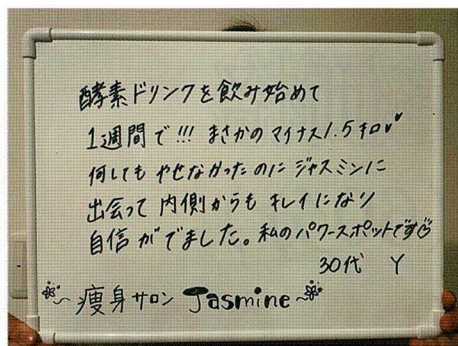 酵素ドリンクを飲み始めて
1週間で!!! まさかのマイナス1.5キロ♥♥
何してもやせなかったのにジャスミンに
出会って内側からもキレイになり
自信がでました。私のパワースポットです☺
30代 Y
痩身サロン Jasmine